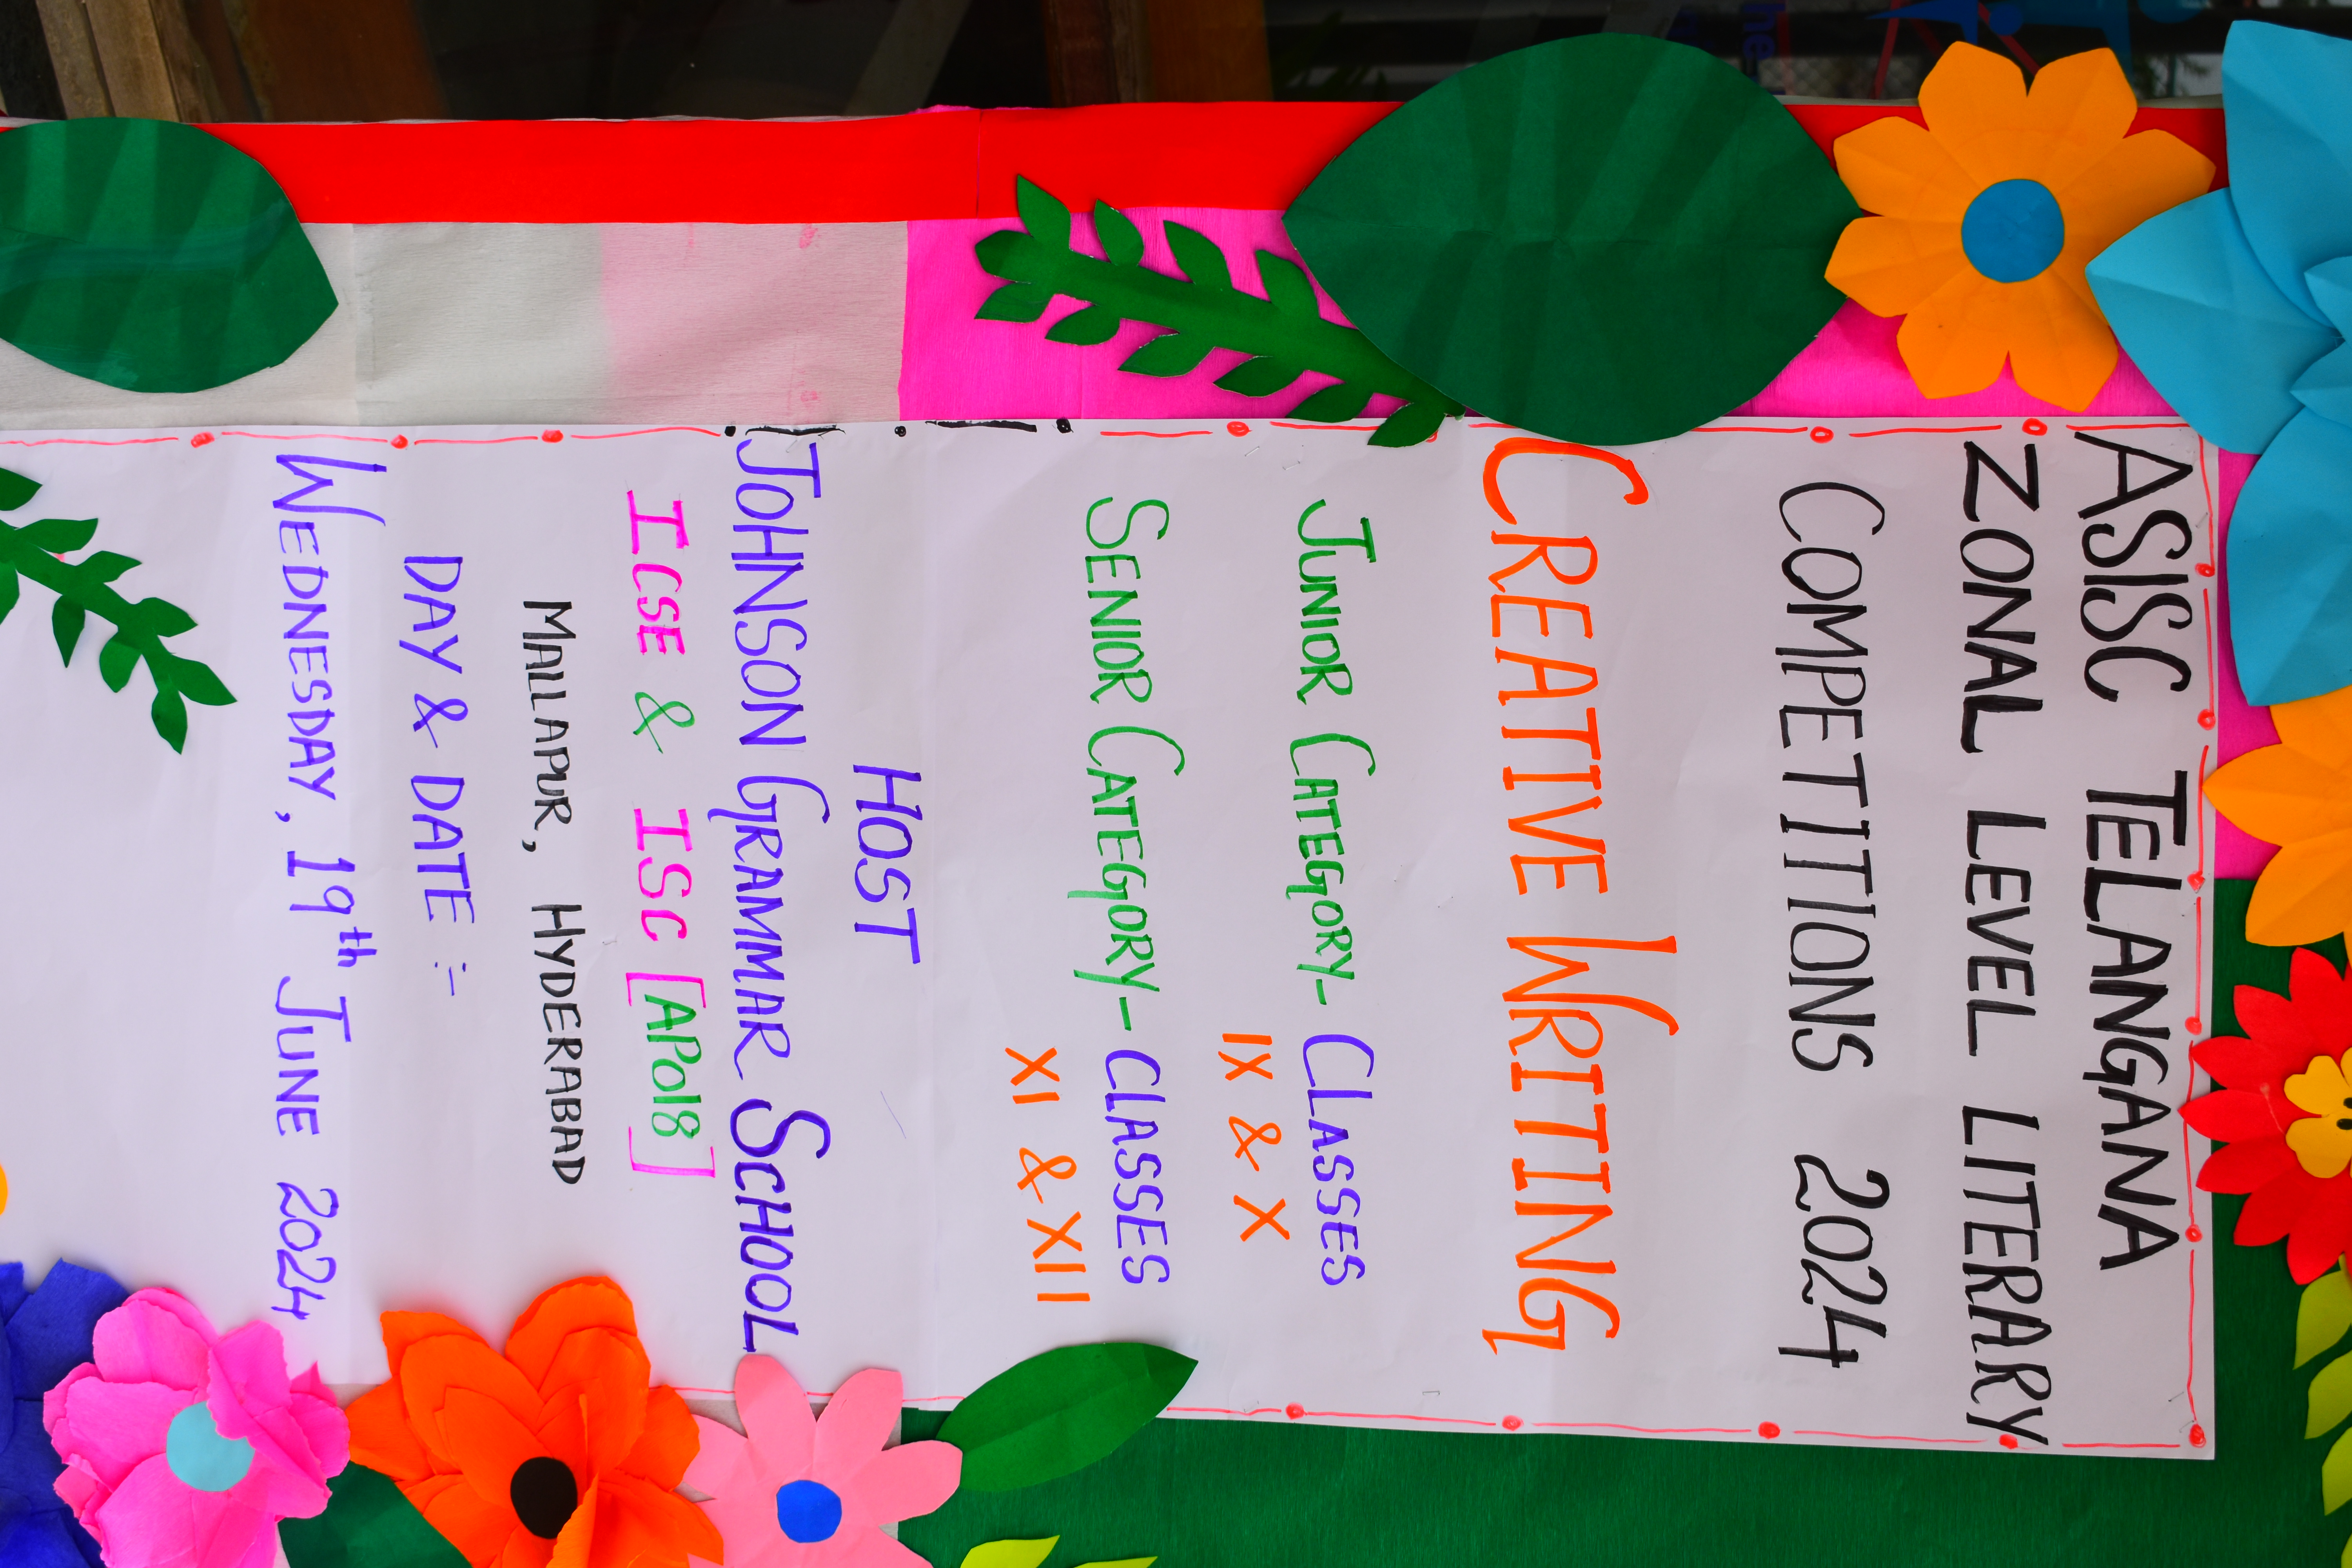 ASISC TELANGANA
ZONAL LEVEL LITERARY
COMPETITIONS 2024
CREATIVE WRITING
JUNIOR CATEGORY- CLASSES
IX & X
SENIOR CATEGORY- CLASSES
XI & XII
HOST
JOHNSON GRAMMAR SCHOOL
ICSE & ISC [AP018]
MALLAPUR, HYDERABAD
DAY & DATE :-
WEDNESDAY, 19th JUNE 2024